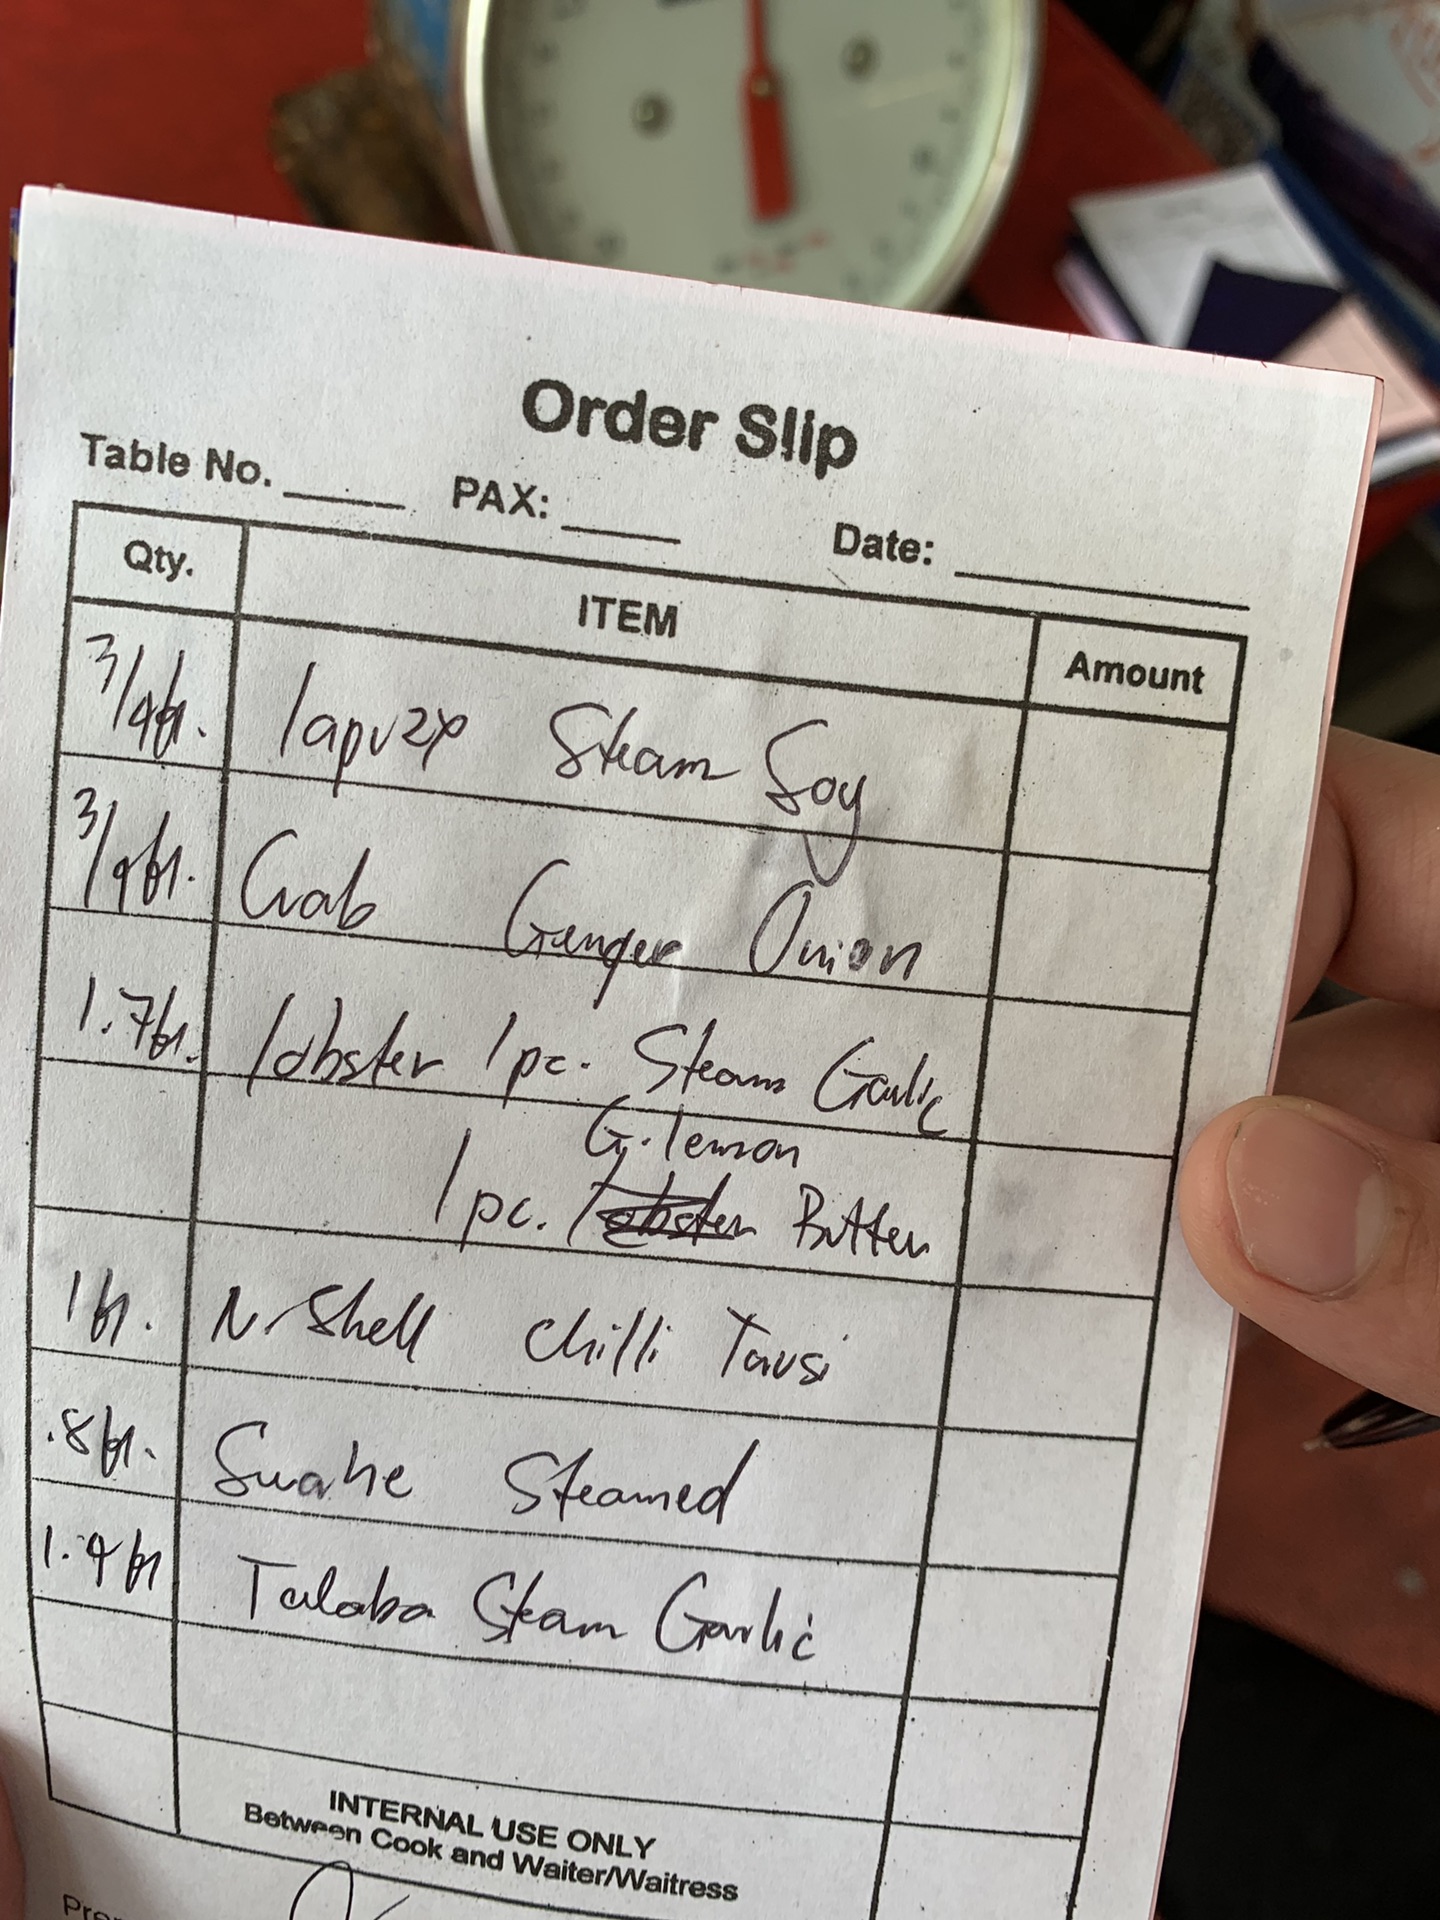 Order Slip
Table No. PAX: Date:
Qty. ITEM Amount
3/4k. lapu2x Steam Soy
3/4k. Crab Genger Onion
1.7k. lobster 1pc. Steam Garlic
G. lemon
1pc. Butter
1k. N. Shell Chilli Tausi
.8k. Suahe Steamed
1.4k Talaba Steam Garlic
INTERNAL USE ONLY
Between Cook and Waiter/Waitress